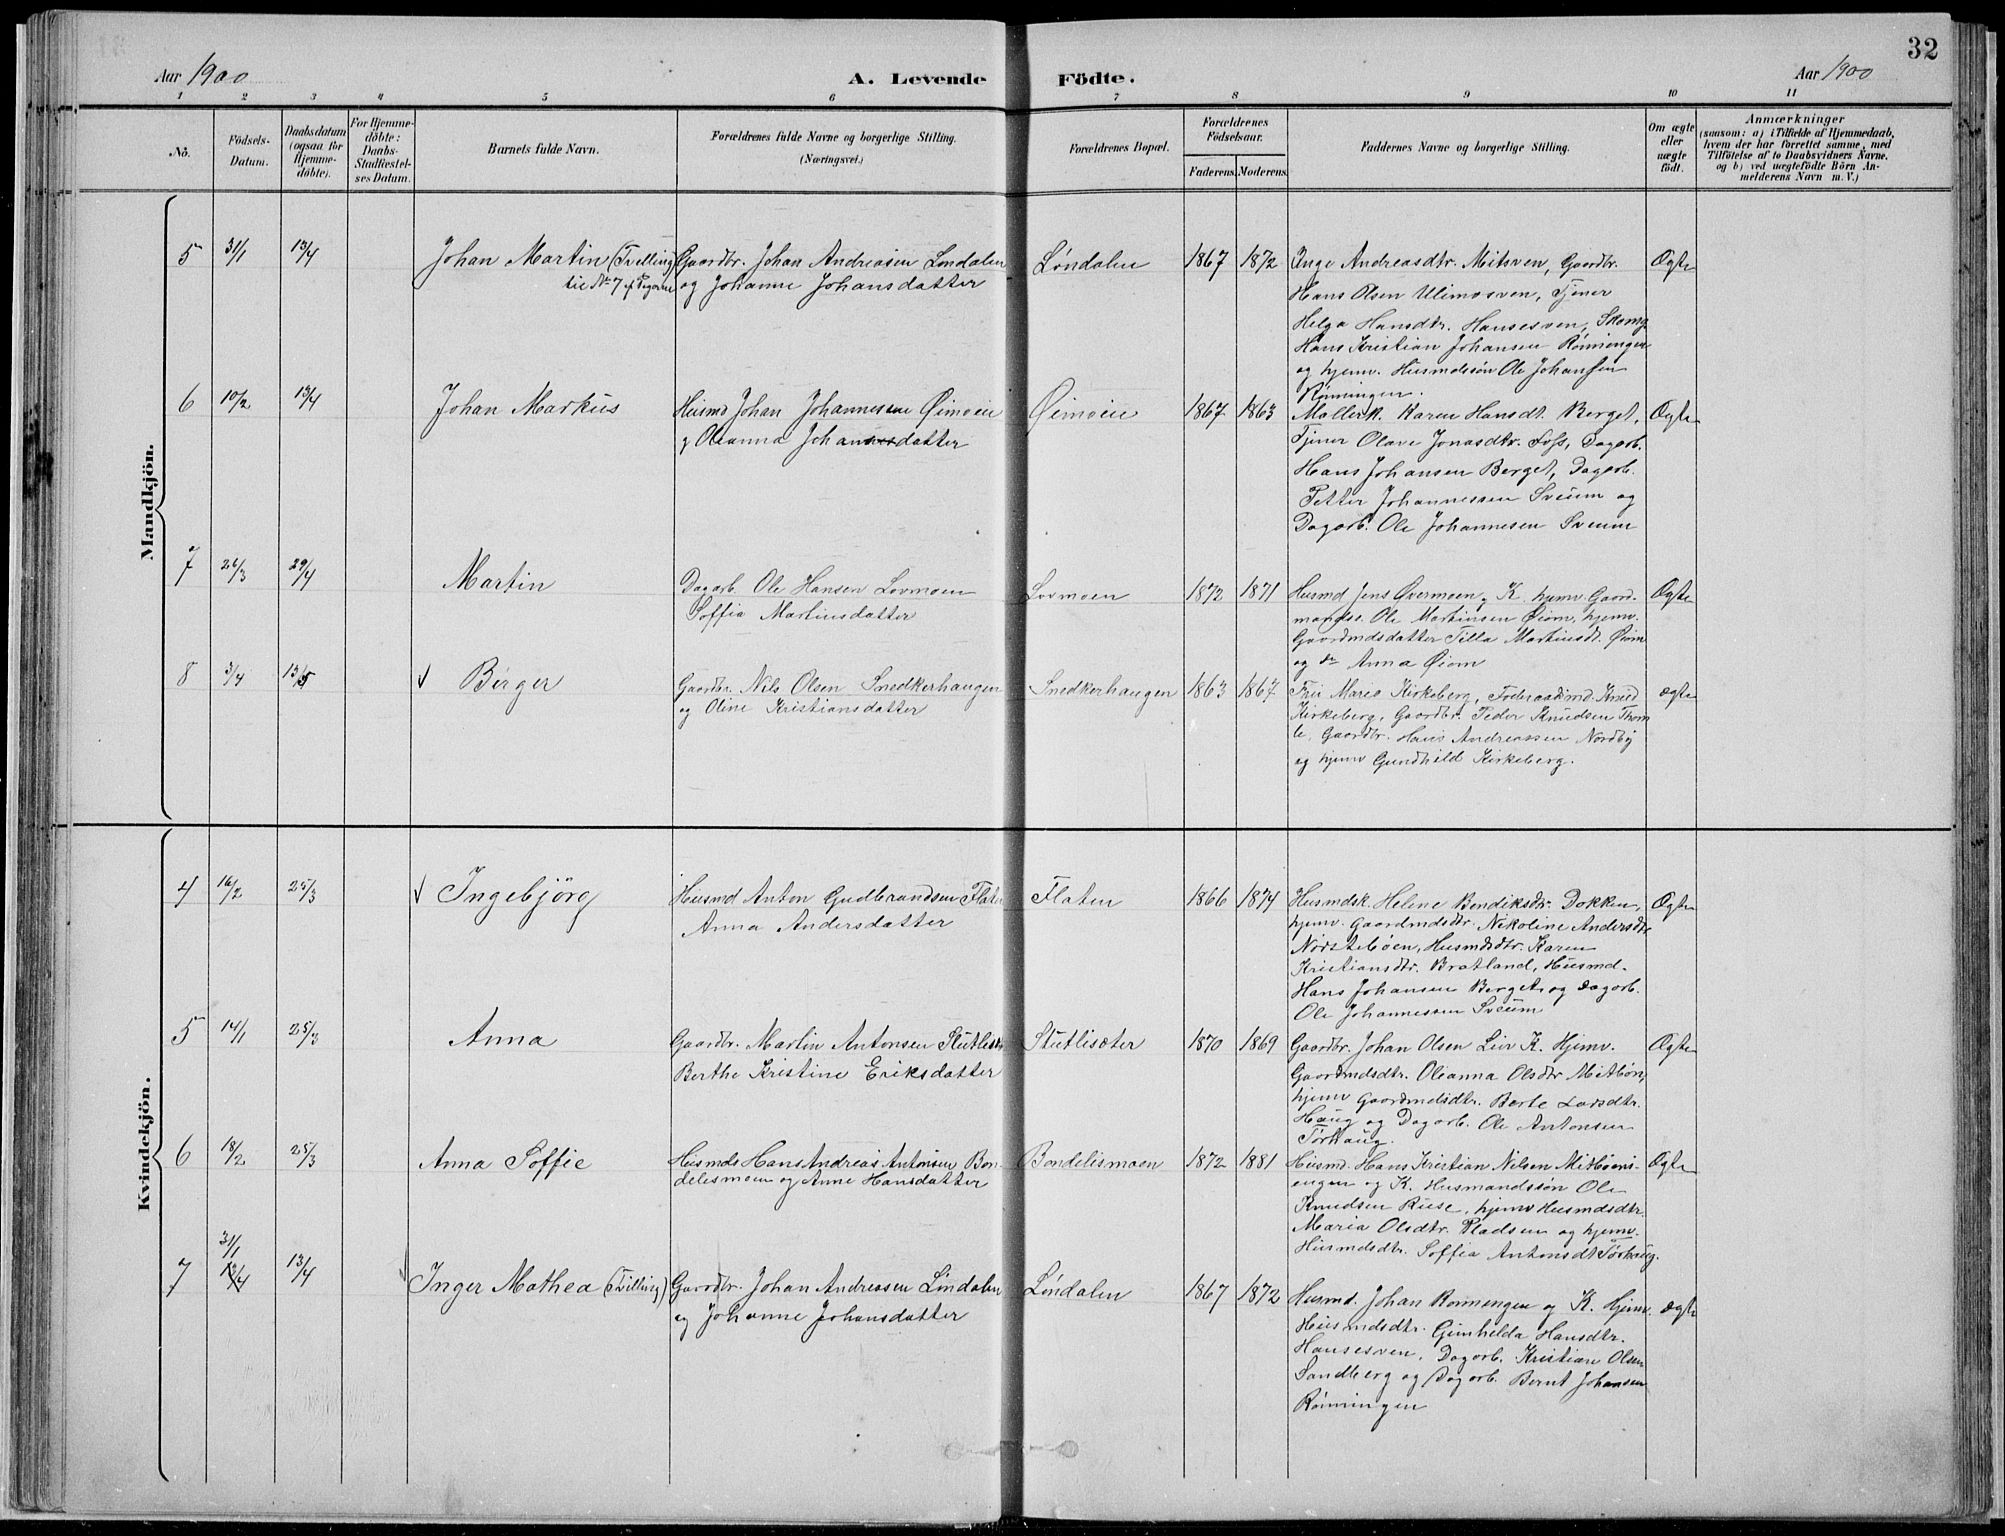 32
Aar 1900
A. Levende Födte.
Aar 1900
1 2 3 4 5 6 7 8 9 10 11
No.
Födsels-
Datum.
Daabsdatum
(ogsaa for
Hjemme-
döbte).
For Hjemme-
döbte:
Daabs-
Stadfæstel-
ses Datum.
Barnets fulde Navn.
Forældrenes fulde Navne og borgerlige Stilling.
(Næringsvei.)
Forældrenes Bopæl.
Forældrenes
Födselsaar.
Faderens. Moderens.
Faddernes Navne og borgerlige Stilling.
Om ægte
eller
uægte
födt.
Anmærkninger
(saasom: a) i Tilfælde af Hjemmedaab,
hvem der har forrettet samme, med
Tilföielse af to Daabsvidners Navne,
og b) ved uægtefödte Börn An-
melderens Navn m. V.)
Mandkjön.
5 31/1 13/4
Johan Martin (Tvilling)
til No 7 af Pigerne
Gaardbr. Johan Andreasen Løndalen
og Johanne Johansdatter
Løndalen 1867 1872
Inge Andreasdtr. Mitsven, Gaardbr.
Hans Olsen Ulimosven, Tjener
Helga Hansdtr. Hansesven, Skomg.
Hans Kristian Johansen Rønningen
og hjemv. Husmdssøn Ole Johansen
Rønningen.
Ægte
6 10/2 13/4
Johan Markus
Husmd Johan Johannessen Øimoen
og Oleanna Johansdatter
Øimoen 1867 1863
Møllerk. Karen Hansdt. Berget,
Tjener Olave Jonasdtr. Foss, Dagarb.
Hans Johansen Berget, Dagarb.
Petter Johannessen Sveum og
Dagarb. Ole Johannesen Sveum
Ægte
7 26/3 29/4
Martin
Dagarb. Ole Hansen Lovmoen
Soffia Martinsdatter
Lovmoen 1872 1871
Husmd Jens Øvermoen og K. hjemv. Gaard-
mandss. Ole Martinsen Øiom, hjemv.
Gaardmdsdatter Tilla Martinsdt. Øiom
og do Anna Øiom
Ægte
8 3/4 13/5
Birger
Gaardbr. Nils Olsen Snedkerhaugen
og Oline Kristiansdatter
Snedkerhaugen 1863 1867
Fru Marie Kirkeberg, Føderaadsmd. Knud
Kirkeberg, Gaardbr. Peder Knudsen Thom-
le, Gaardbr. Hans Andreassen Nordby
og hjemv Gundhild Kirkeberg.
ægte
Kvindekjön.
4 16/2 25/3
Ingebjörg
Husmd Anton Gudbrandsen Flaten
Anna Andersdatter
Flaten 1866 1874
Husmdsk. Helene Bendiksdtr. Dokken,
hjemv. Gaardmdsdtr. Nikoline Andersdtr
Nørstebøen, Husmdsdtr. Karen
Kristiansdtr. Bratland, Husmd.
Hans Johansen Berget og Dagarb.
Ole Johannessen Sveum
Ægte
5 14/1 25/3
Anna
Gaardbr. Martin Antonsen Stutlisæter
Berthe Kristine Eriksdatter
Stutlisæter 1870 1869
Gaardbr. Johan Olsen Lier K. Hjemv.
Gaardmdsdtr. Oleanna Olsdtr Mitbøn,
hjemv Gaardmdsdtr. Berte Larsdtr.
Haug og Dagarb. Ole Antonsen
Tørhaug.
Ægte
6 18/2 25/3
Anna Soffie
Husmds Hans Andreas Antonsen Bon-
delismoen og Anne Hansdatter
Bondelismoen 1872 1881
Husmd. Hans Kristian Nilsen Mitbøens-
engen og K. Husmandssøn Ole
Knudsen Ruse, hjemv Husmdsdtr.
Maria Olsdtr. Pladsen og hjemv.
Husmdsdtr. Soffia Antonsdt Tørhaug.
Ægte
7 31/1 13/4
Inger Mathea (Tvilling)
Gaardbr. Johan Andreasen Løndalen
og Johanne Johansdatter
Løndalen 1867 1872
Husmd. Johan Rønningen og K. Hjemv.
Husmdsdtr. Gunhelda Hansdtr.
Hansesven, Dagarb. Kristian Olsen
Sandberg og Dagarb. Bernt Johansen
Rønningen
ægte